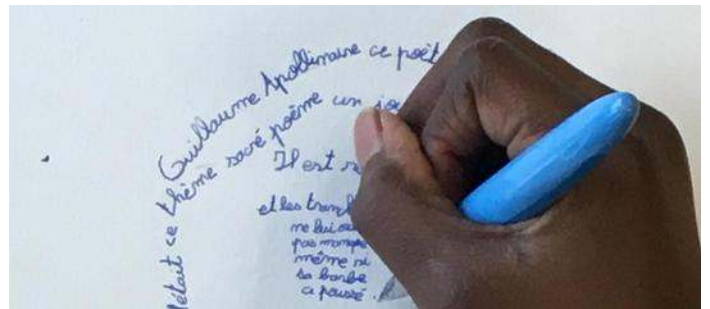 Guillaume Apollinaire ce poèt
était ce thème sacré poème un jou
Il est
et les
ne lui
pas manqué
même si
sa barbe
a poussé.